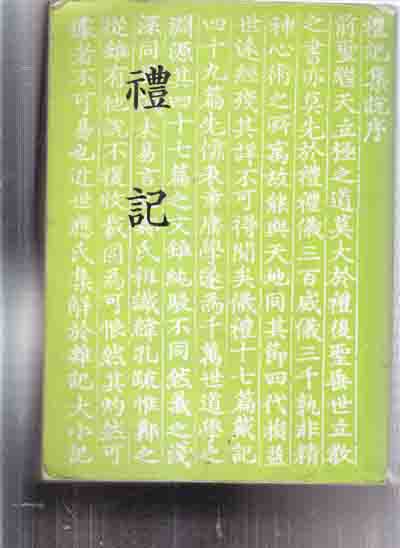 禮記
禮記集說序
前聖繼天立極之道莫大於禮後聖垂世立教
之書亦莫先於禮禮儀三百威儀三千孰非精
神心術之所寓故能與天地同其節四代損益
世遠經殘其詳不可得聞矣儀禮十七篇戴記
四十九篇先儒表章庸學遂為千萬世道學之
淵源其四十七篇之文雖純駁不同然義之淺
深同未易言氏祖讖緯孔疏惟鄭之
從雖有他說不復收載固為可恨然其灼然可
據者不可易也近世應氏集解於雜記大小記